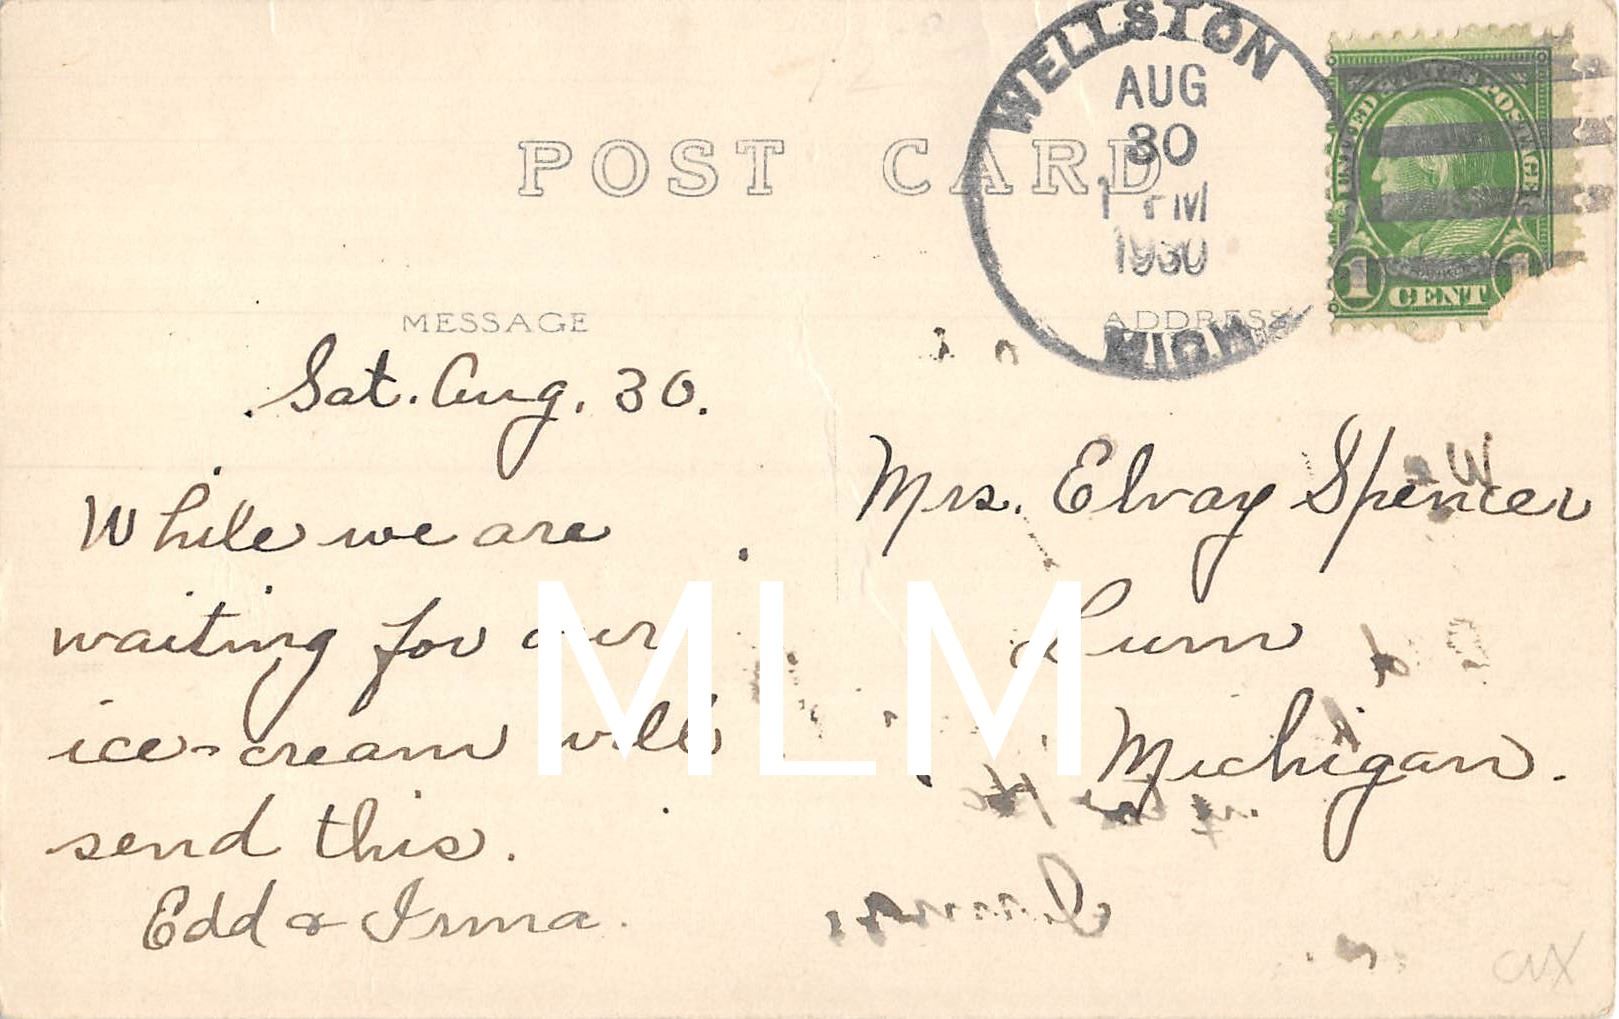 WELLSTON
AUG
30
1 PM
1930
MICH.
UNITED STATES POSTAGE
1 CENT
POST CARD
MESSAGE
ADDRESS
Sat. Aug. 30.
While we are
waiting for our
ice-cream will
send this.
Edd & Irma.
Mrs. Elvay Spencer
Lum
Michigan.
MLM